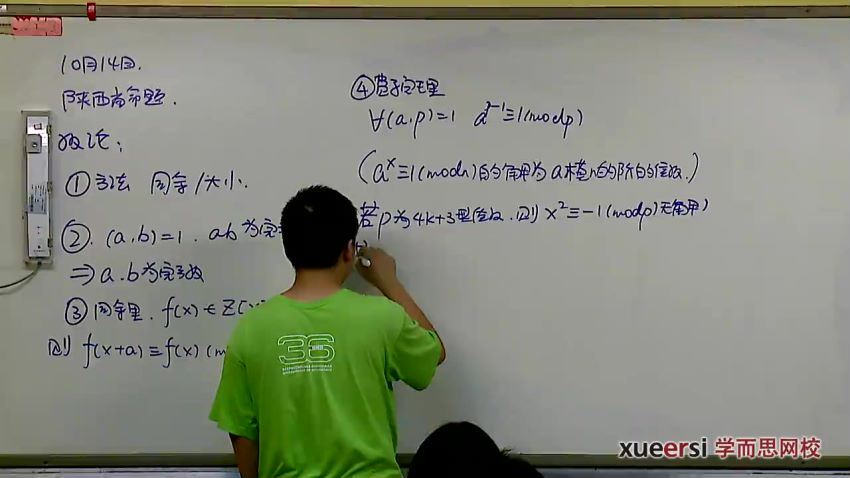 10月14日.
陕西高命题.
数论:
① 方法 同余/大小.
② (a,b)=1. ab为完
⇒ a.b为完
③ 同余 . f(x)∈Z[x]
则 f(x+a)≡f(x) (m
④ 费 定理
∀(a,p)=1 a^{p-1}≡1(mod p)
(a^x≡1(mod n)的解为a模n的阶的倍数.)
若p为4k+3型 . 则 x²≡-1(mod p)无解)
36
xueersi 学而思网校